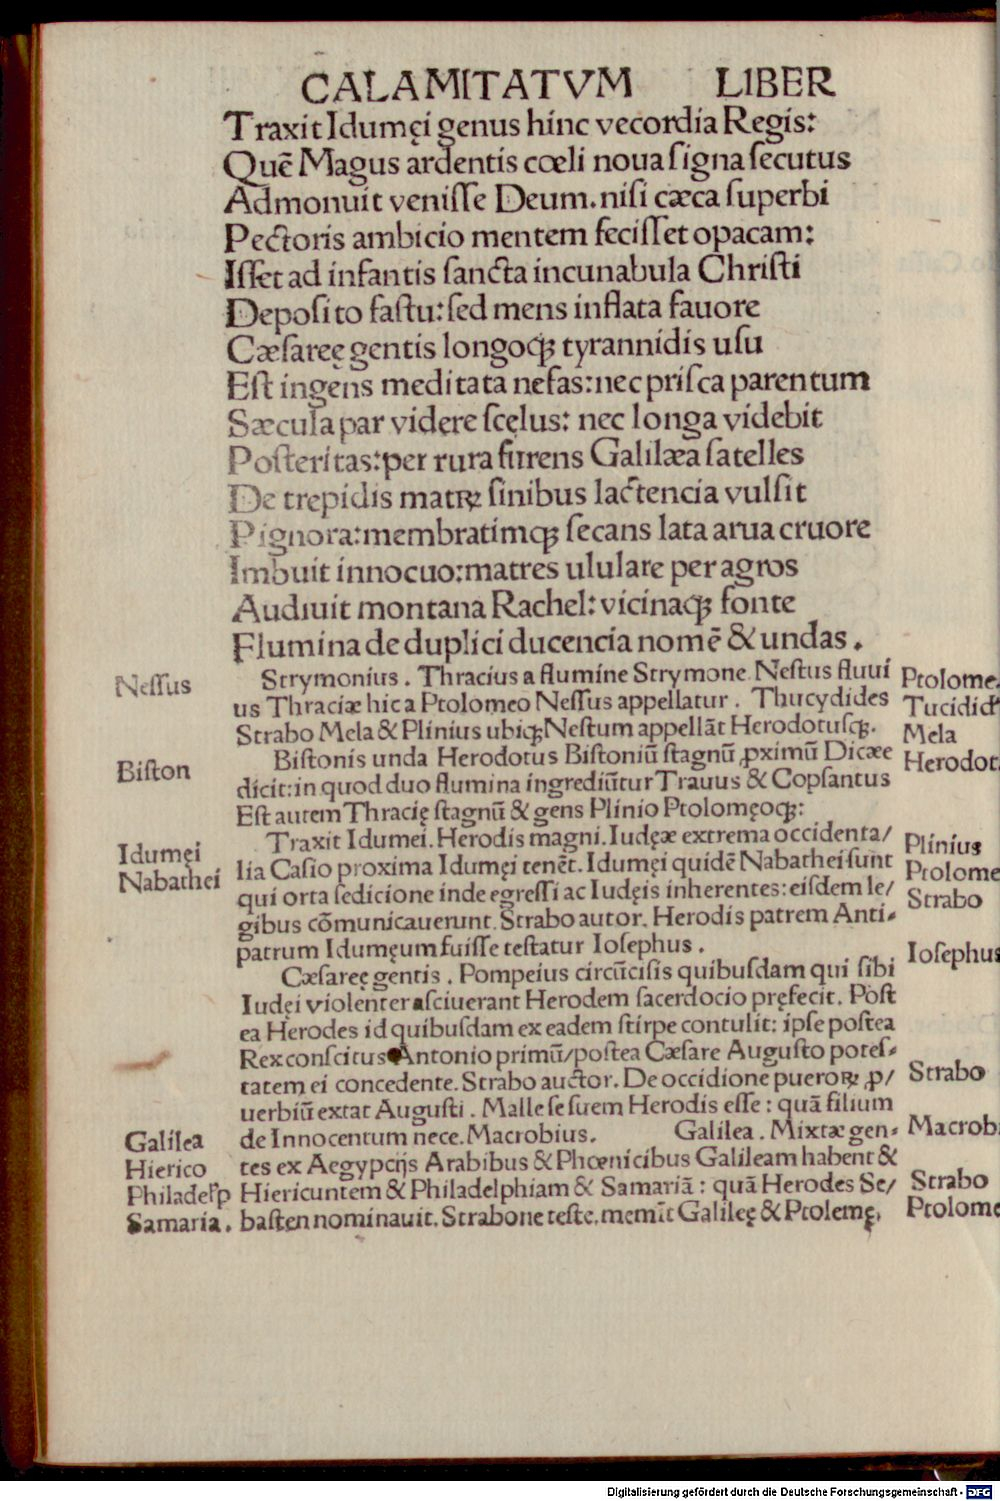 CALAMITATVM LIBER
Traxit Idumęi genus hinc vecordia Regis:
Quē Magus ardentis cœli noua ſigna ſecutus
Admonuit veniſſe Deum. niſi cæca ſuperbi
Pectoris ambicio mentem feciſſet opacam:
Iſſet ad infantis ſancta incunabula Chriſti
Depoſito faſtu: ſed mens inflata fauore
Cæſareę gentis longoqꝫ tyrannidis uſu
Eſt ingēns meditata nefas: nec priſca parentum
Sæcula par videre ſcęlus: nec longa videbit
Poſteritas: per rura furens Galilæa ſatelles
De trepidis matrꝝ ſinibus lactencia vulſit
Pignora: membratimqꝫ ſecans lata arua cruore
Imbuit innocuo: matres ululare per agros
Audiuit montana Rachel: vicinaqꝫ fonte
Flumina de duplici ducencia nomē & undas.
Neſſus
Biſton
Idumęi
Nabathei
Galilea
Hierico
Philadelp
Samaria.
Strymonius. Thracius a flumine Strymone. Neſtus fluui
us Thraciæ hic a Ptolomeo Neſſus appellatur. Thucydides
Strabo Mela & Plinius ubiqꝫ Neſtum appellāt Herodotuſqꝫ.
Biſtonis unda Herodotus Biſtoniū ſtagnū ꝓximū Dicæe
dicit: in quod duo flumina ingrediūtur Trauus & Copſantus
Eſt autem Thracię ſtagnū & gens Plinio Ptolomęoqꝫ:
Traxit Idumei. Herodis magni. Iudęæ extrema occidenta/
lia Caſio proxima Idumęi tenēt. Idumęi quidē Nabathei ſunt
qui orta ſedicione inde egreſſi ac Iudęis inherentes: eiſdem le/
gibus cōmunicauerunt. Strabo autor. Herodis patrem Anti⸗
patrum Idumęum fuiſſe teſtatur Ioſephus.
Cæſareę gentis. Pompeius circūciſis quibuſdam qui ſibi
Iudęi violenter aſciuerant Herodem ſacerdocio pręfecit. Poſt
ea Herodes id quibuſdam ex eadem ſtirpe contulit: ipſe poſtea
Rex conſcitus Antonio primū/ poſtea Cæſare Auguſto poteſ⸗
tatem ei concedente. Strabo auctor. De occidione puerorꝝ ꝓ/
uerbiū extat Auguſti. Malle ſe ſuem Herodis eſſe: quā filium
de Innocentum nece. Macrobius. Galilea. Mixtæ gen⸗
tes ex Aegypcijs Arabibus & Phœnicibus Galileam habent &
Hiericuntem & Philadelphiam & Samariā: quā Herodes Se/
baſten nominauit. Strabone teſte. memīt Galileę & Ptolemę,
Ptolome.
Tucidid
Mela
Herodot.
Plinius
Ptolome
Strabo
Ioſephus
Strabo
Macrob.
Strabo
Ptolome
Digitalisierung gefördert durch die Deutsche Forschungsgemeinschaft - DFG